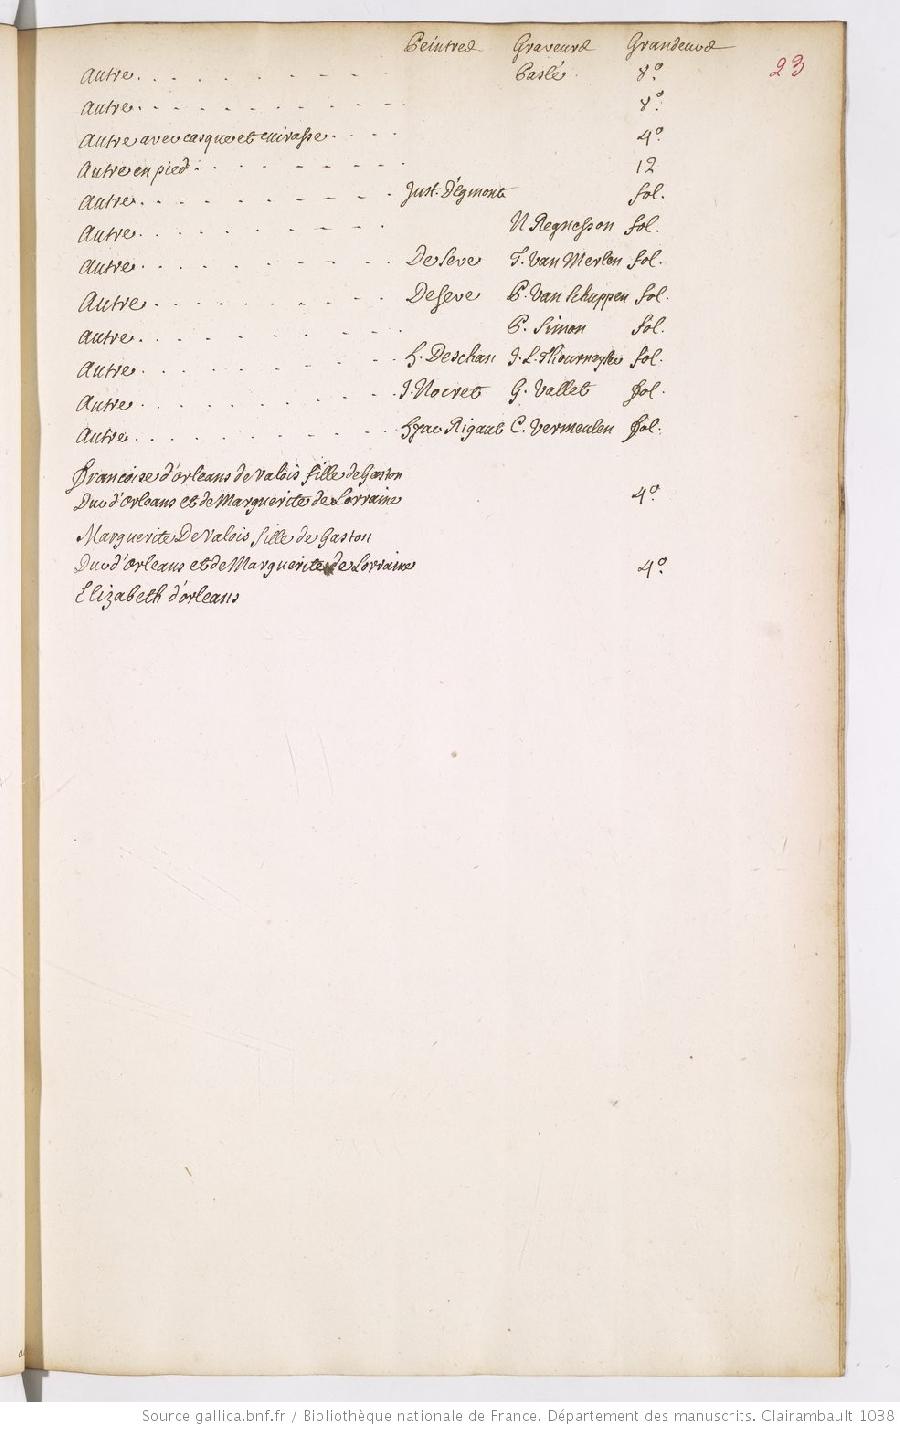 Peintres Graveurs Grandeurs
23
Autre . . . . . . . . . . Parlé . 8º
Autre . . . . . . . . . . 8º
Autre avec casque et cuirasse . . . . 4º
Autre en pied . . . . . . . . 12
Autre . . . . . . . . . . Just. d'Egmont fol.
Autre . . . . . . . . . . N Regnesson fol.
Autre . . . . . . . . . . De Seve T. Van Merlen fol.
Autre . . . . . . . . . . De Seve P. Van Schuppen fol.
Autre . . . . . . . . . . P. Simon fol.
Autre . . . . . . . . . . H. Deschan J. L. fol.
Autre . . . . . . . . . . J. Nocret G. Vallet fol.
Autre . . . . . . . . . . Hyac Rigault C. Vermeulen fol.
Francoise d'orleans de Valois fille de Gaston
Duc d'Orleans et de Marguerite de Lorraine 4º
Marguerite De Valois fille de Gaston
Duc d'Orleans et de Marguerite de Lorraine 4º
Elizabeth d'orleans
Source gallica.bnf.fr / Bibliothèque nationale de France. Département des manuscrits. Clairambault 1038